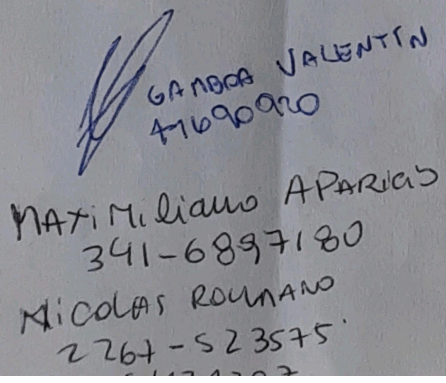 GAMBOA VALENTIN
41690920
MAXiMiliano APARicio
341-6897180
NicOLAS ROLMANO
2267-523575